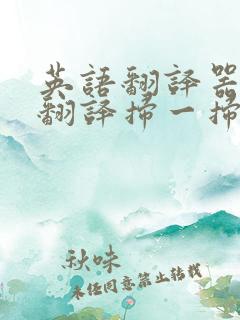 英語翻譯器
翻譯掃一掃
秋味
未經同意禁止轉載